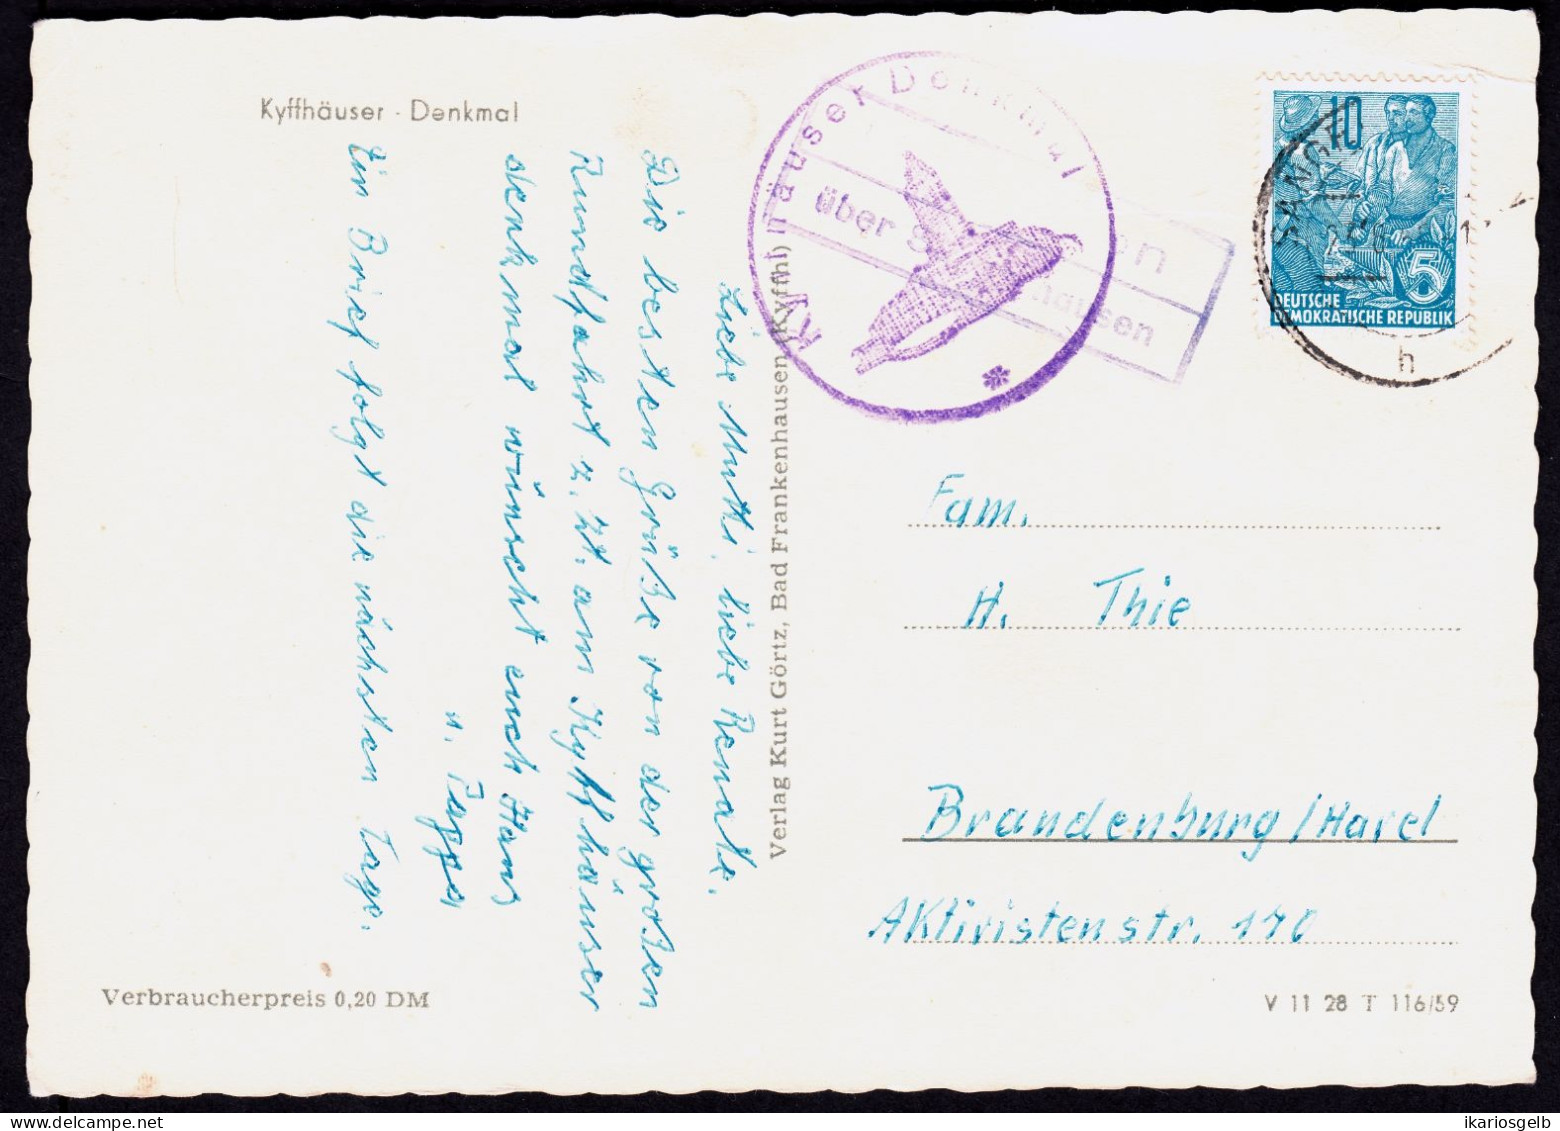 Kyffhäuser - Denkmal
Liebe Mutti, liebe Renate.
Die besten Grüße von der großen
Rundfahrt z. Zt. am Kyffhäuser
denkmal wünscht euch Hans
u. Pappa
Ein Brief folgt die nächsten Tage.
Verbraucherpreis 0,20 DM
Verlag Kurt Görtz, Bad Frankenhausen (Kyffh)
Kyffhäuser Denkmal
über
hausen
SANGE
h
10
5
DEUTSCHE
DEMOKRATISCHE REPUBLIK
Fam.
H. Thie
Brandenburg/Havel
Aktivistenstr. 170
V 11 28 T 116/59
ikariosgelb